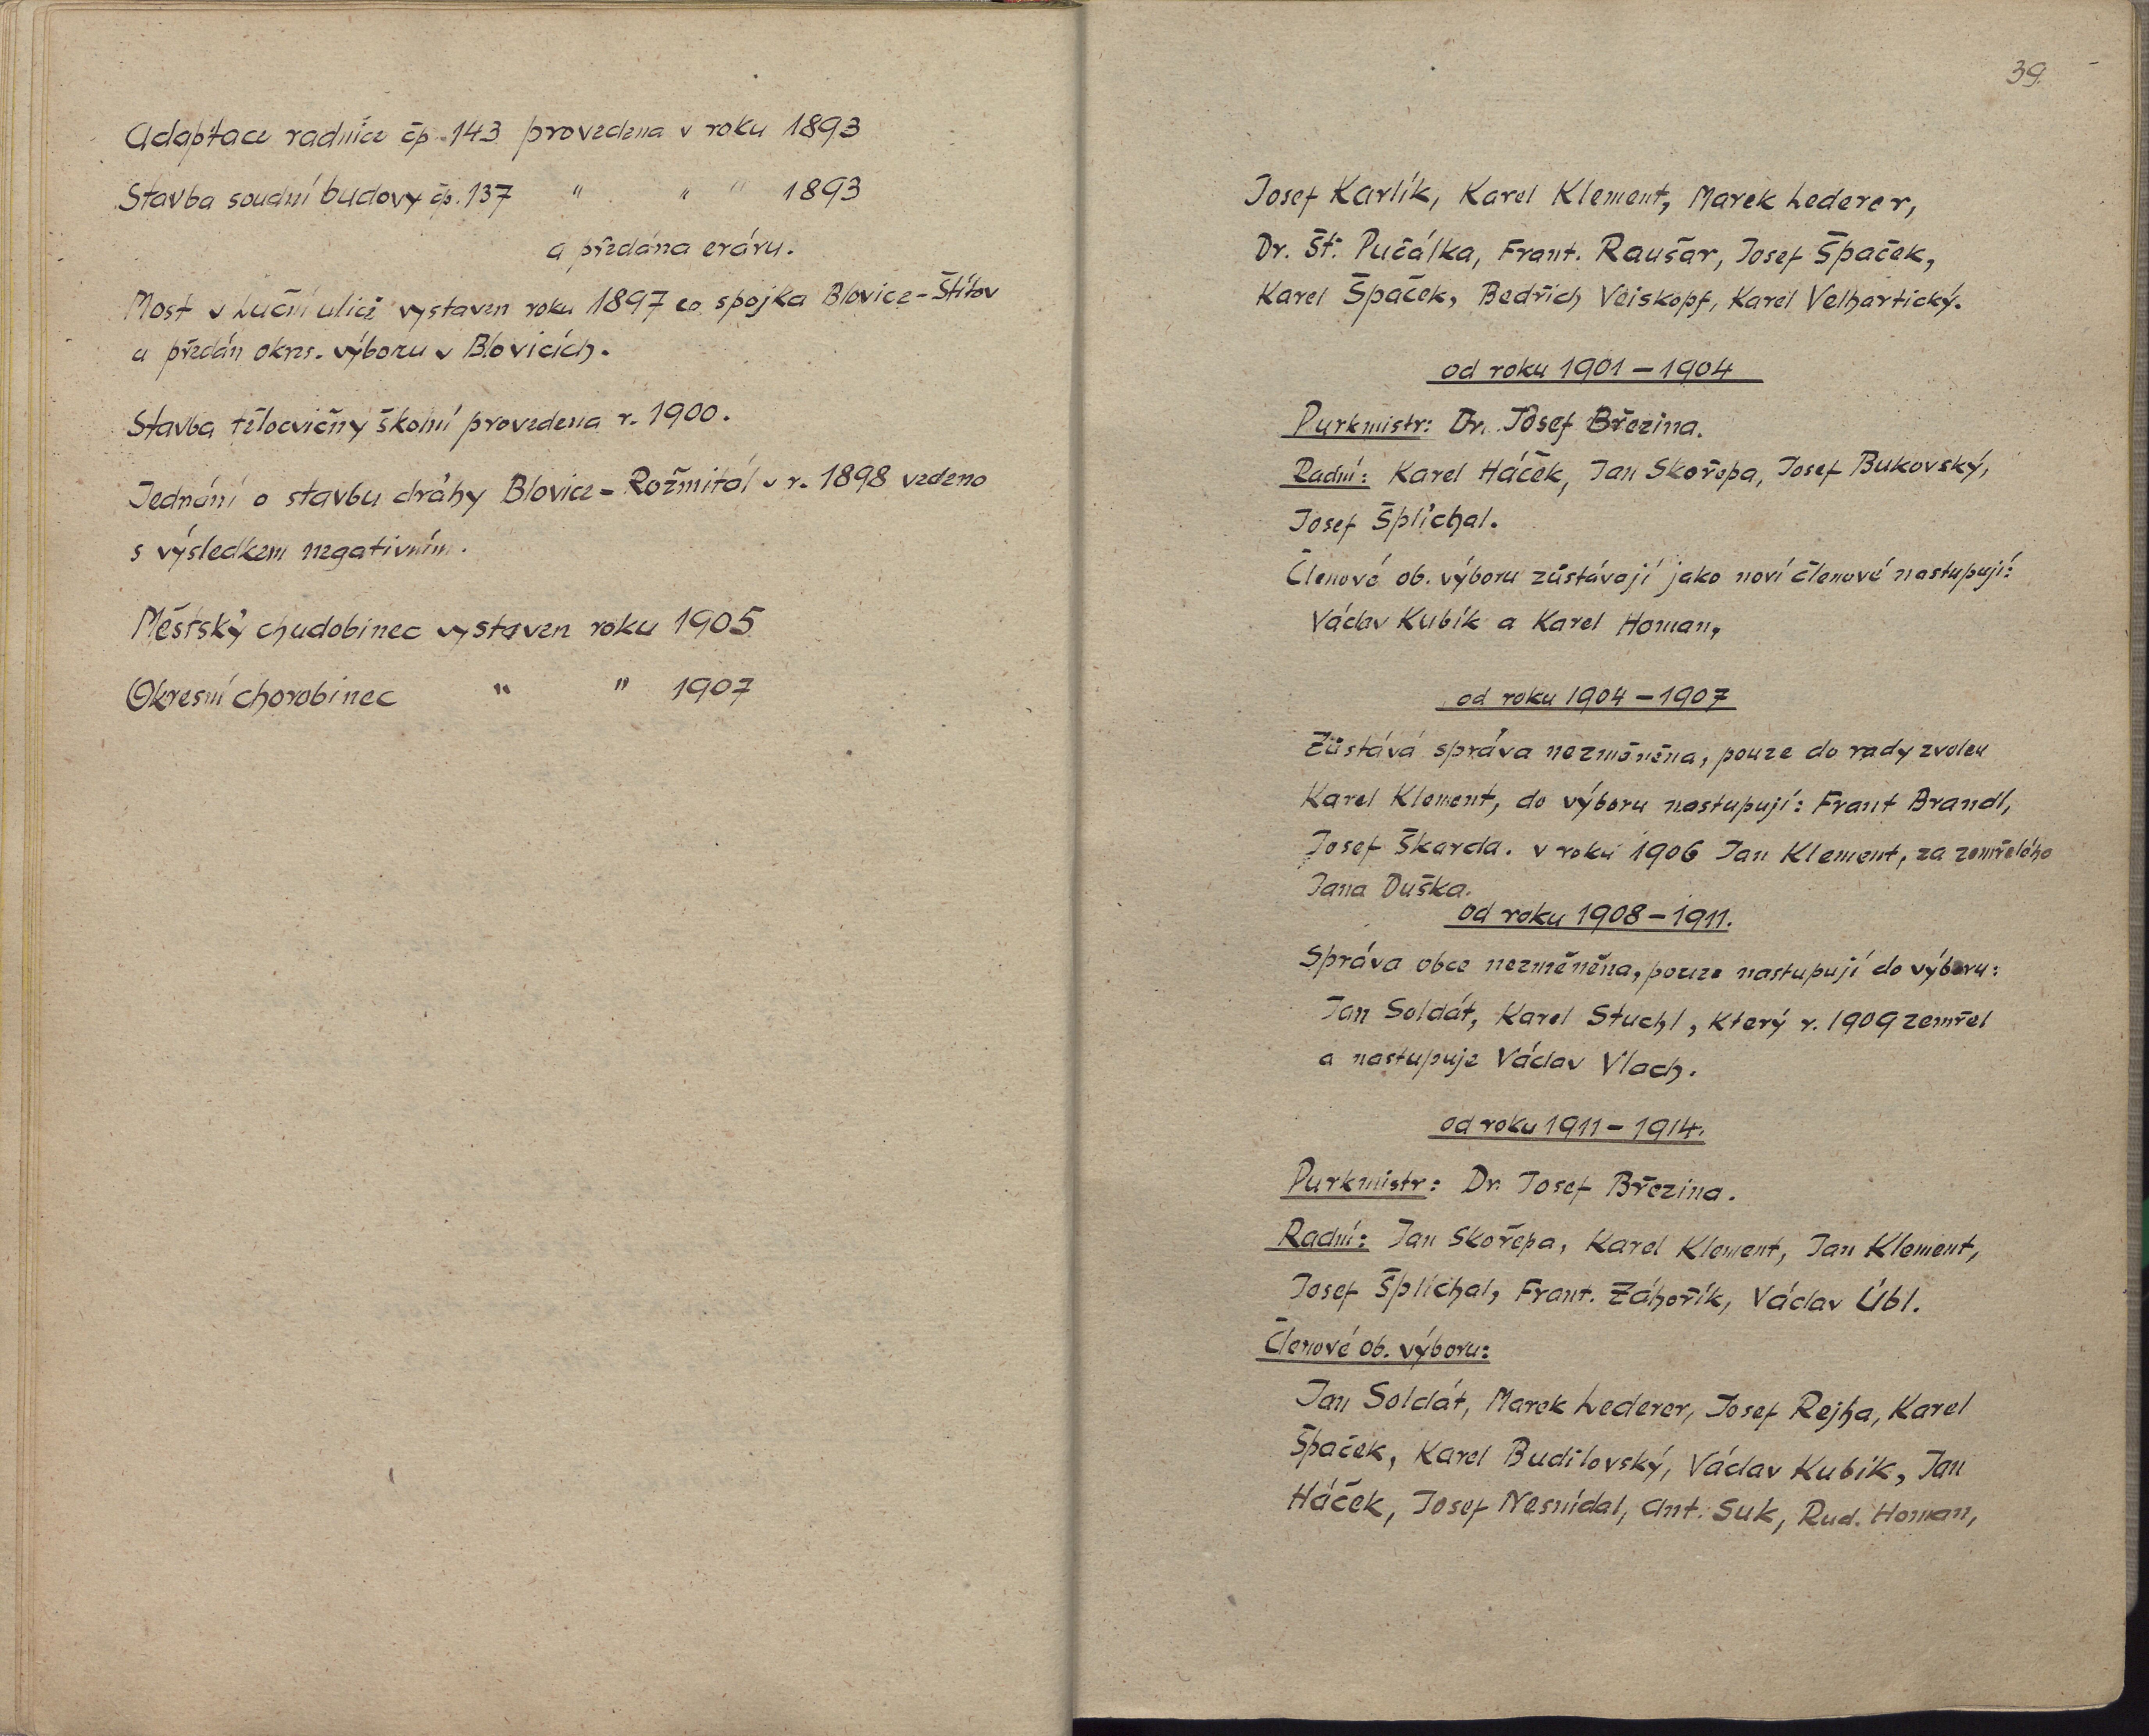 Adaptace radnice čp. 143 provedena v roku 1893
Stavba soudní budovy čp. 137 " " " 1893
a předána eráru.
Most v Luční ulici vystaven roku 1897 co spojka Blovice-Štítov
a předán okres. výboru v Blovicích.
Stavba tělocvičny školní provedena r. 1900.
Jednání o stavbu dráhy Blovice-Rožmitál v r. 1898 vedeno
s výsledkem negativním.
Městský chudobinec vystaven roku 1905
Okresní chorobinec " " 1907
39.
Josef Karlík, Karel Klement, Marek Lederer,
Dr. Št. Pučálka, Frant. Raušar, Josef Špaček,
Karel Špaček, Bedřich Veiskopf, Karel Velhartický.
od roku 1901-1904
Purkmistr: Dr. Josef Březina.
Radní: Karel Háček, Jan Skořepa, Josef Bukovský,
Josef Šplíchal.
Členové ob. výboru zůstávají jako noví členové nastupují:
Václav Kubík a Karel Homan,
od roku 1904-1907
Zůstává správa nezměněna, pouze do rady zvolen
Karel Klement, do výboru nastupují: Frant Brandl,
Josef Škarda. v roku 1906 Jan Klement, za zemřelého
Jana Duška.
od roku 1908-1911.
Správa obce nezměněna, pouze nastupují do výboru:
Jan Soldát, Karel Stuchl, který r. 1909 zemřel
a nastupuje Václav Vlach.
od roku 1911-1914.
Purkmistr: Dr. Josef Březina.
Radní: Jan Skořepa, Karel Klement, Jan Klement,
Josef Šplíchal, Frant. Záhořík, Václav Úbl.
Členové ob. výboru:
Jan Soldát, Marek Lederer, Josef Rejha, Karel
Špaček, Karel Budilovský, Václav Kubík, Jan
Háček, Josef Nesnídal, Ant. Suk, Rud. Homan,